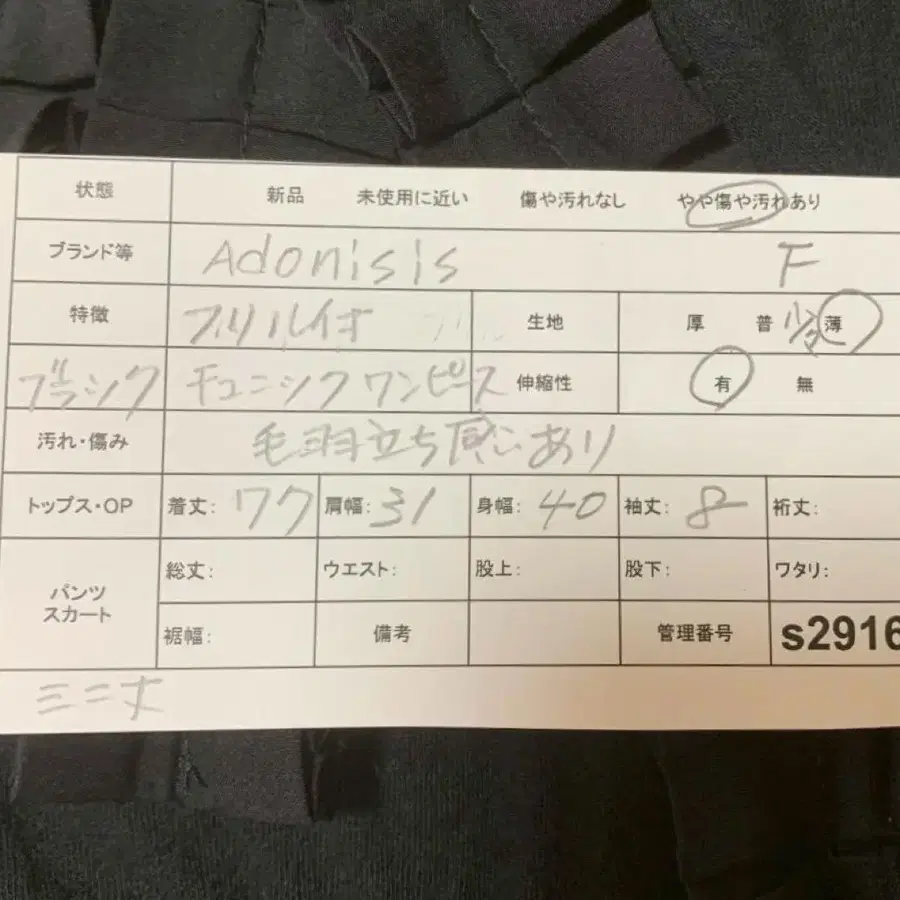 状態 新品 未使用に近い 傷や汚れなし やや傷や汚れあり
ブランド等 Adonisis F
特徴 フリル付 生地 厚 普 少々 薄
ブラック チュニックワンピース 伸縮性 有 無
汚れ・傷み 毛羽立ち 感じあり
トップス・OP 着丈: 77 肩幅: 31 身幅: 40 袖丈: 8 裄丈:
パンツ スカート 総丈: ウエスト: 股上: 股下: ワタリ:
裾幅: 備考 管理番号 s2916
ミニ丈